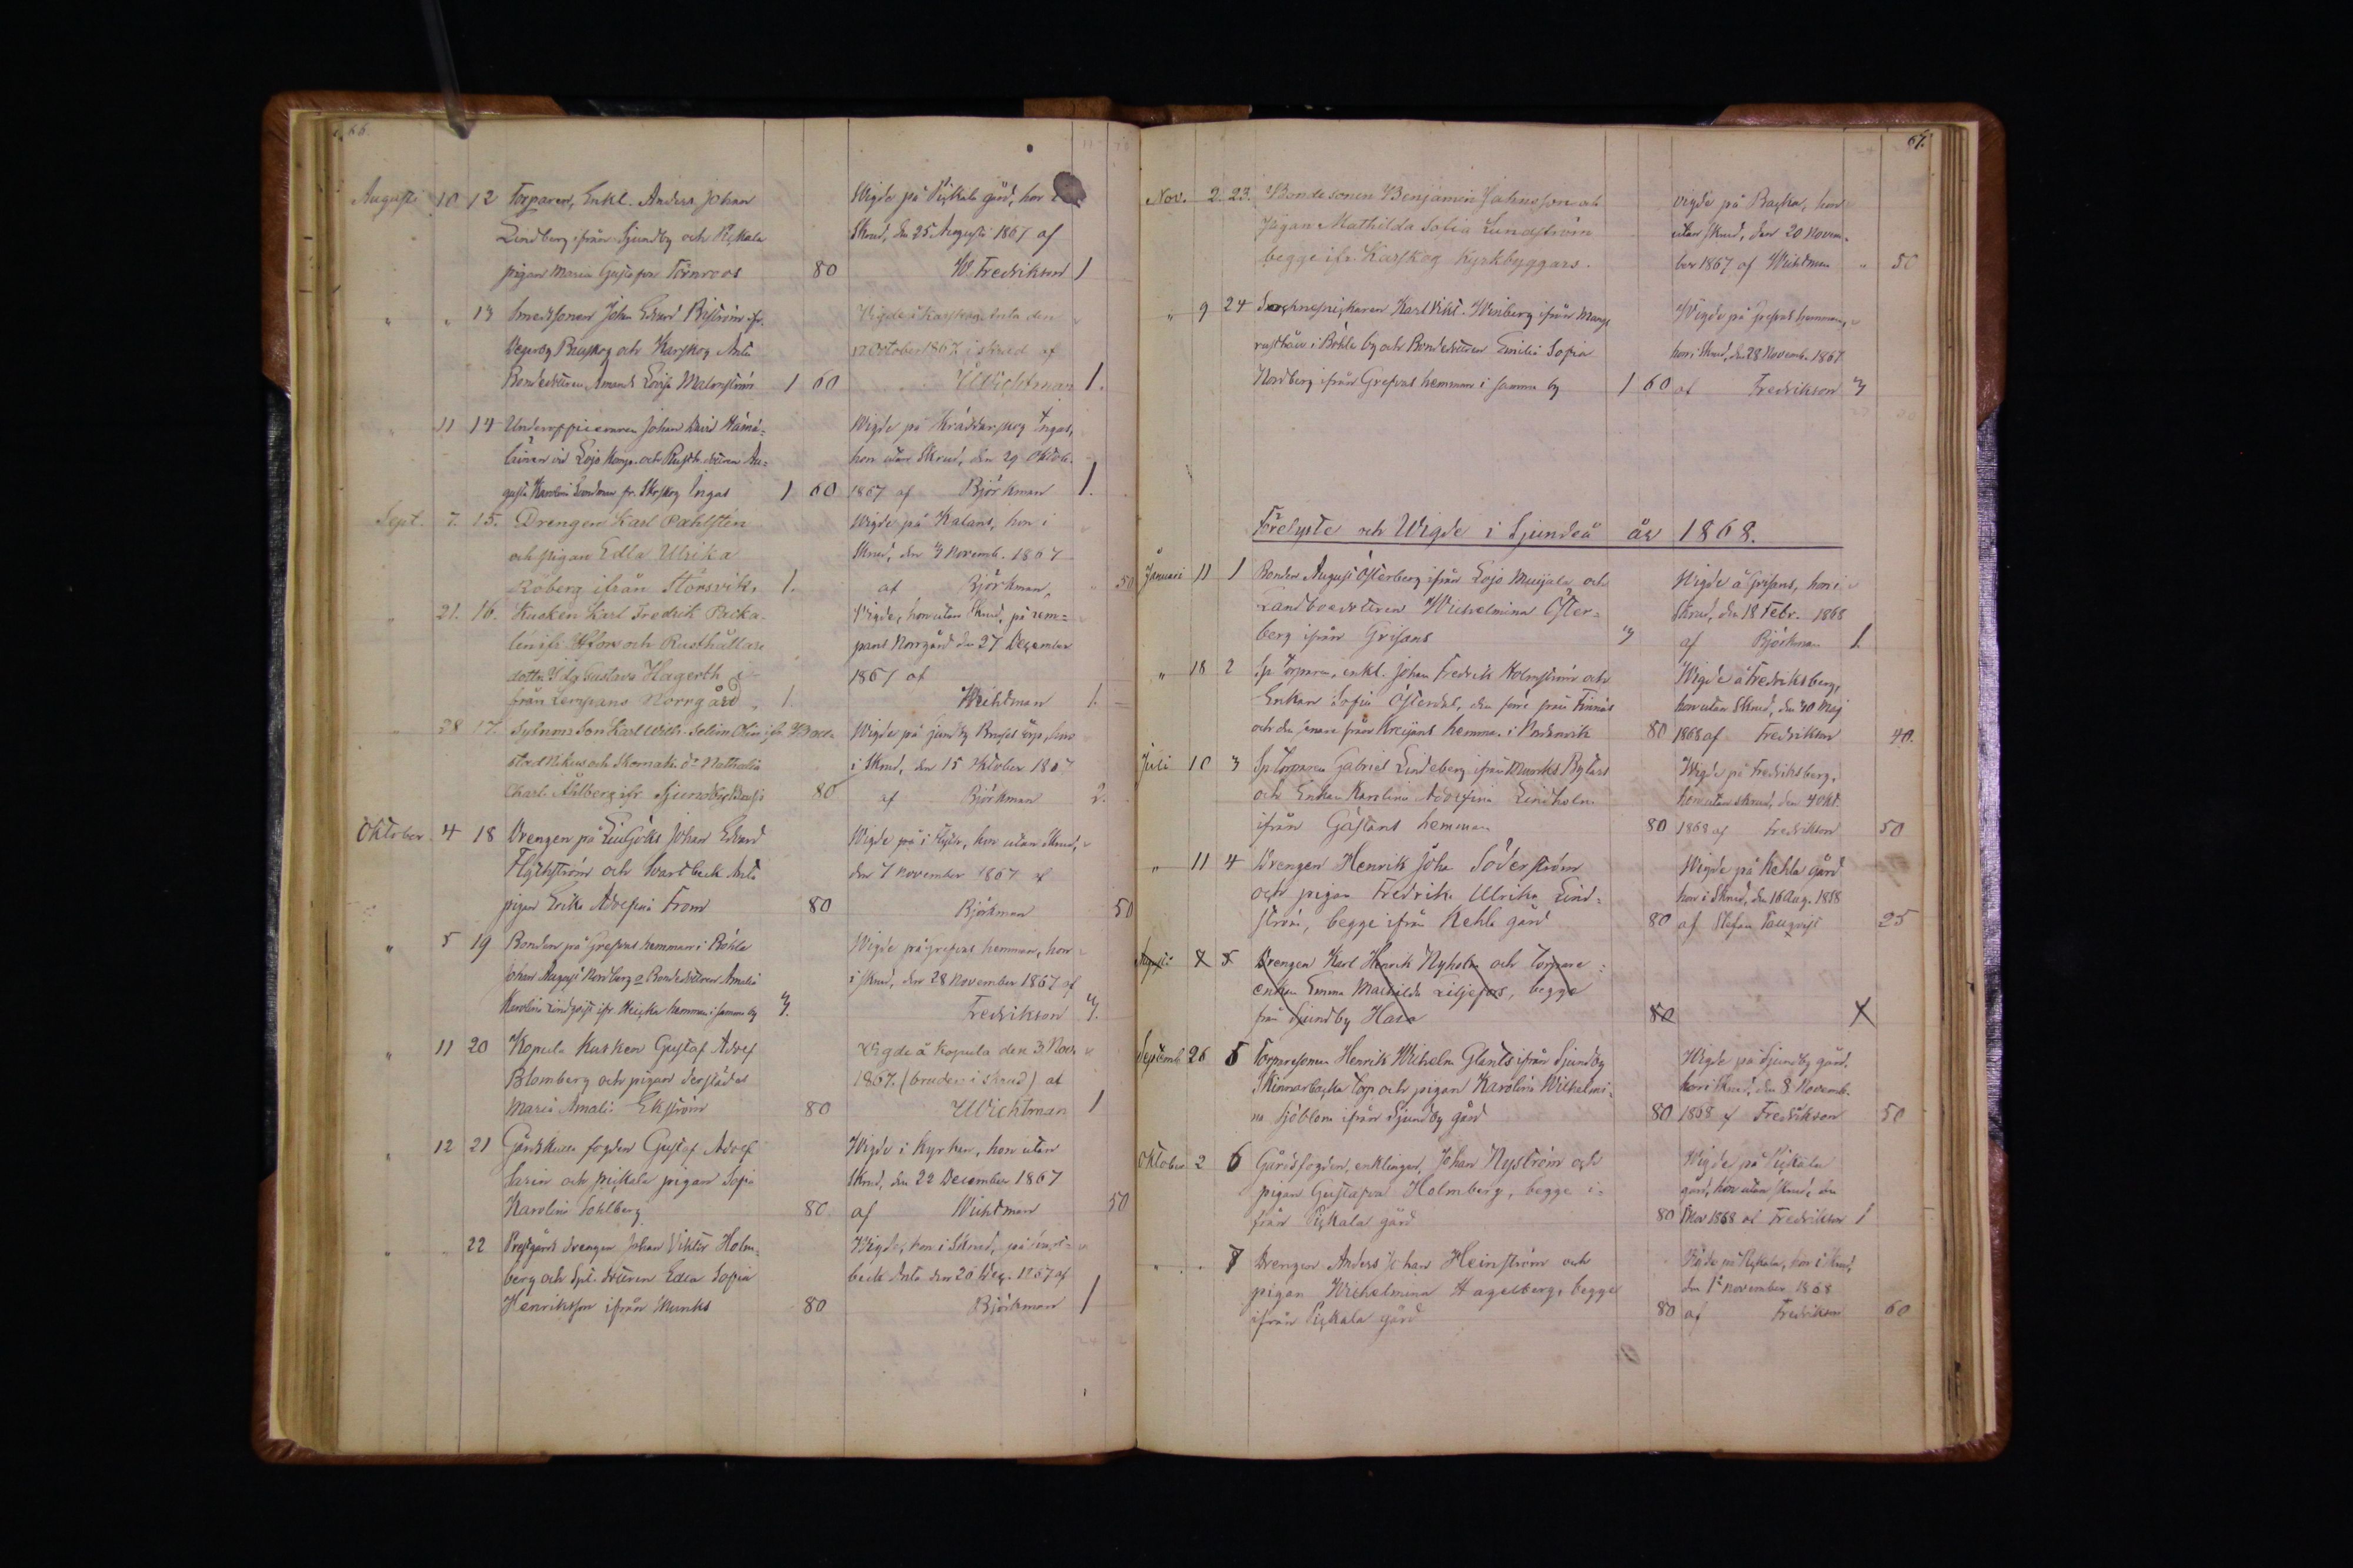 66.
Augusti 10 12 Torparen, Enkl. Anders Johan
Lindberg ifrån Sjundby och Pickala
pigan Maria Gustafva Törnroos 80
Wigde på Pickala gård, hon i
Skrud, den 25 Augusti 1867 af
W. Fredrikson 1
" " 13 Smedsonen Johan Edvard
och Karskog
Bondedottren Amanda Lovisa Malmström 1 60
Wigde å Karskog den
12 October 1867 i skrud af
Wichtman 1.
" 11 14 Underofficeraren Johan
vid Lojo och
Karolina fr. Ingas 1 60
Wigde på Ingas,
hon utan Skrud, den 29 Oktob.
1867 af Björkman 1.
Sept. 7. 15. Drengen Karl Pahlsten
och pigan Edla Ulrika
Roberg ifrån Storsvik, 1.
Wigde på Kalans, hon i
Skrud, den 3 Novemb. 1867
af Björkman, " 50
" 21. 16. Kusken Karl Fredrik
och Rusthållare
dottr. Gustava Hagerth i-
från Lempans Norrgård, 1.
Wigde, hon utan Skrud, på Lem=
pans Norrgård den 27 December
1867 af
Wichtman 1.
" 28 17. Karl Wilh.
och Nathalia
Charl. Åhlberg ifr Sjundby 80
Wigde på Sjundby hon
i Skrud, den 15 Oktober 1867
af Björkman 2.
Oktober 4 18 Drengen på Johan Edvard
och Svartbeck
pigan Erika Adolfina From 80
Wigde på hon utan Skrud,
den 7 November 1867 af
Björkman 50
" 5 19 Bonden på Grefvas hemman i Böhle
Johan August Nordberg o Bondedottren Amalia
Karolina Lindqvist ifr. hemman i samma by 3.
Wigde på Grefvas hemman, hon
i skrud, den 28 November 1867 af
Fredrikson 3.
" 11 20 Kopula Kusken Gustaf Adolf
Blomberg och pigan derstädes
Maria Amalia Ekström 80
Wigde å Kopula den 3 Nov.
1867. (bruden i skrud) af
Wichtman 1
" 12 21 fogden Gustaf Adolf
och Pickala pigan Sofia
Karolina Sohlberg 80
Wigde i kyrkan, hon utan
Skrud, den 22 December 1867
af Wichtman 50
" " 22 Prestgårds drengen Johan Viktor Holm=
berg och dottren Edla Sofia
Henriksson ifrån Munks 80
Wigde, hon i Skrud, på Svart=
beck den 26 Dec. 1867 af
Björkman 1
67.
Nov. 2. 23. Bondesonen Benjamin Johnsson och
Pigan Mathilda Sofia Lundström
begge ifr. Karskog Kyrkbyggars.
vigde på Backa, hon
utan skrud, den 20 Novem-
ber 1867 af Wichtman " 50
" 9 24 Karl Vikt. Winberg ifrån
rusthåll i Böhle by och Bondedottren Emilia Sofia
Nordberg ifrån Grefvas hemman i samma by 1 60
Wigde på Grefvas hemman,
hon i Skrud, den 28 Novemb. 1867
af Fredrikson 3
Förelyste och Wigde i Sjundeå år 1868.
Januari 11 1 Bonden August Österberg ifrån Lojo Muijala och
Landboedottren Wilhelmina Öster=
berg ifrån Grisans 3
Wigde å Grisans, hon i
Skrud, den 18 Febr. 1868
af Björkman 1.
" 18 2 Sp. Torparen, enkl. Johan Fredrik Holmström och
Enkan Sofia Österdal, den förre från Finnäs
och den senare från hemman i 80
Wigde å Fredriksberg,
hon utan Skrud, den 10 Maj
1868 af Fredrikson 40.
Juli 10 3 Sp Torparen Gabriel Lindeberg ifrån Munks
och Enkan Karolina Adolfina Lindholm
ifrån Gåstans hemman 80
Wigde på Fredriksberg,
hon utan skrud, den 4 Okt.
1868 af Fredrikson 50
" 11 4 Drengen Henrik Joha Söderström
och pigan Fredrika Ulrika Lind=
ström, begge ifrån Kehla gård 80
Wigde på Kehla gård
hon i Skrud, den 16 Aug. 1868
af Stefan Tallqvist 25
Augusti 8 5 Drengen Karl Henrik Nyholm och Torpare=
enkan Emma Mathilda Liljefors, begge
från Sjundby 80
Septemb 26 5 Torparesonen Henrik Wilhelm Glants ifrån Sjundby
Skinnarbacka Torp och pigan Karolina Wilhelmi=
na Sjöblom ifrån Sjundby gård 80
Wigde på Sjundby gård,
hon i Skrud, den 8 Novemb.
1868 af Fredrikson 50
Oktober 2 6 Gårdsfogden, enklingen, Johan Nyström och
pigan Gustafva Holmberg, begge i=
från Pickala gård 80
Wigde på Pickala
gård, hon utan Skrud, den
1 Nov 1868 af Fredrikson 1
" " 7 Drengen Anders Johan Heinström och
pigan Wilhelmina Hagelberg, begge
ifrån Pickala gård 80
Wigde på Pickala, hon i Skrud,
den 1 November 1868
af Fredrikson 60